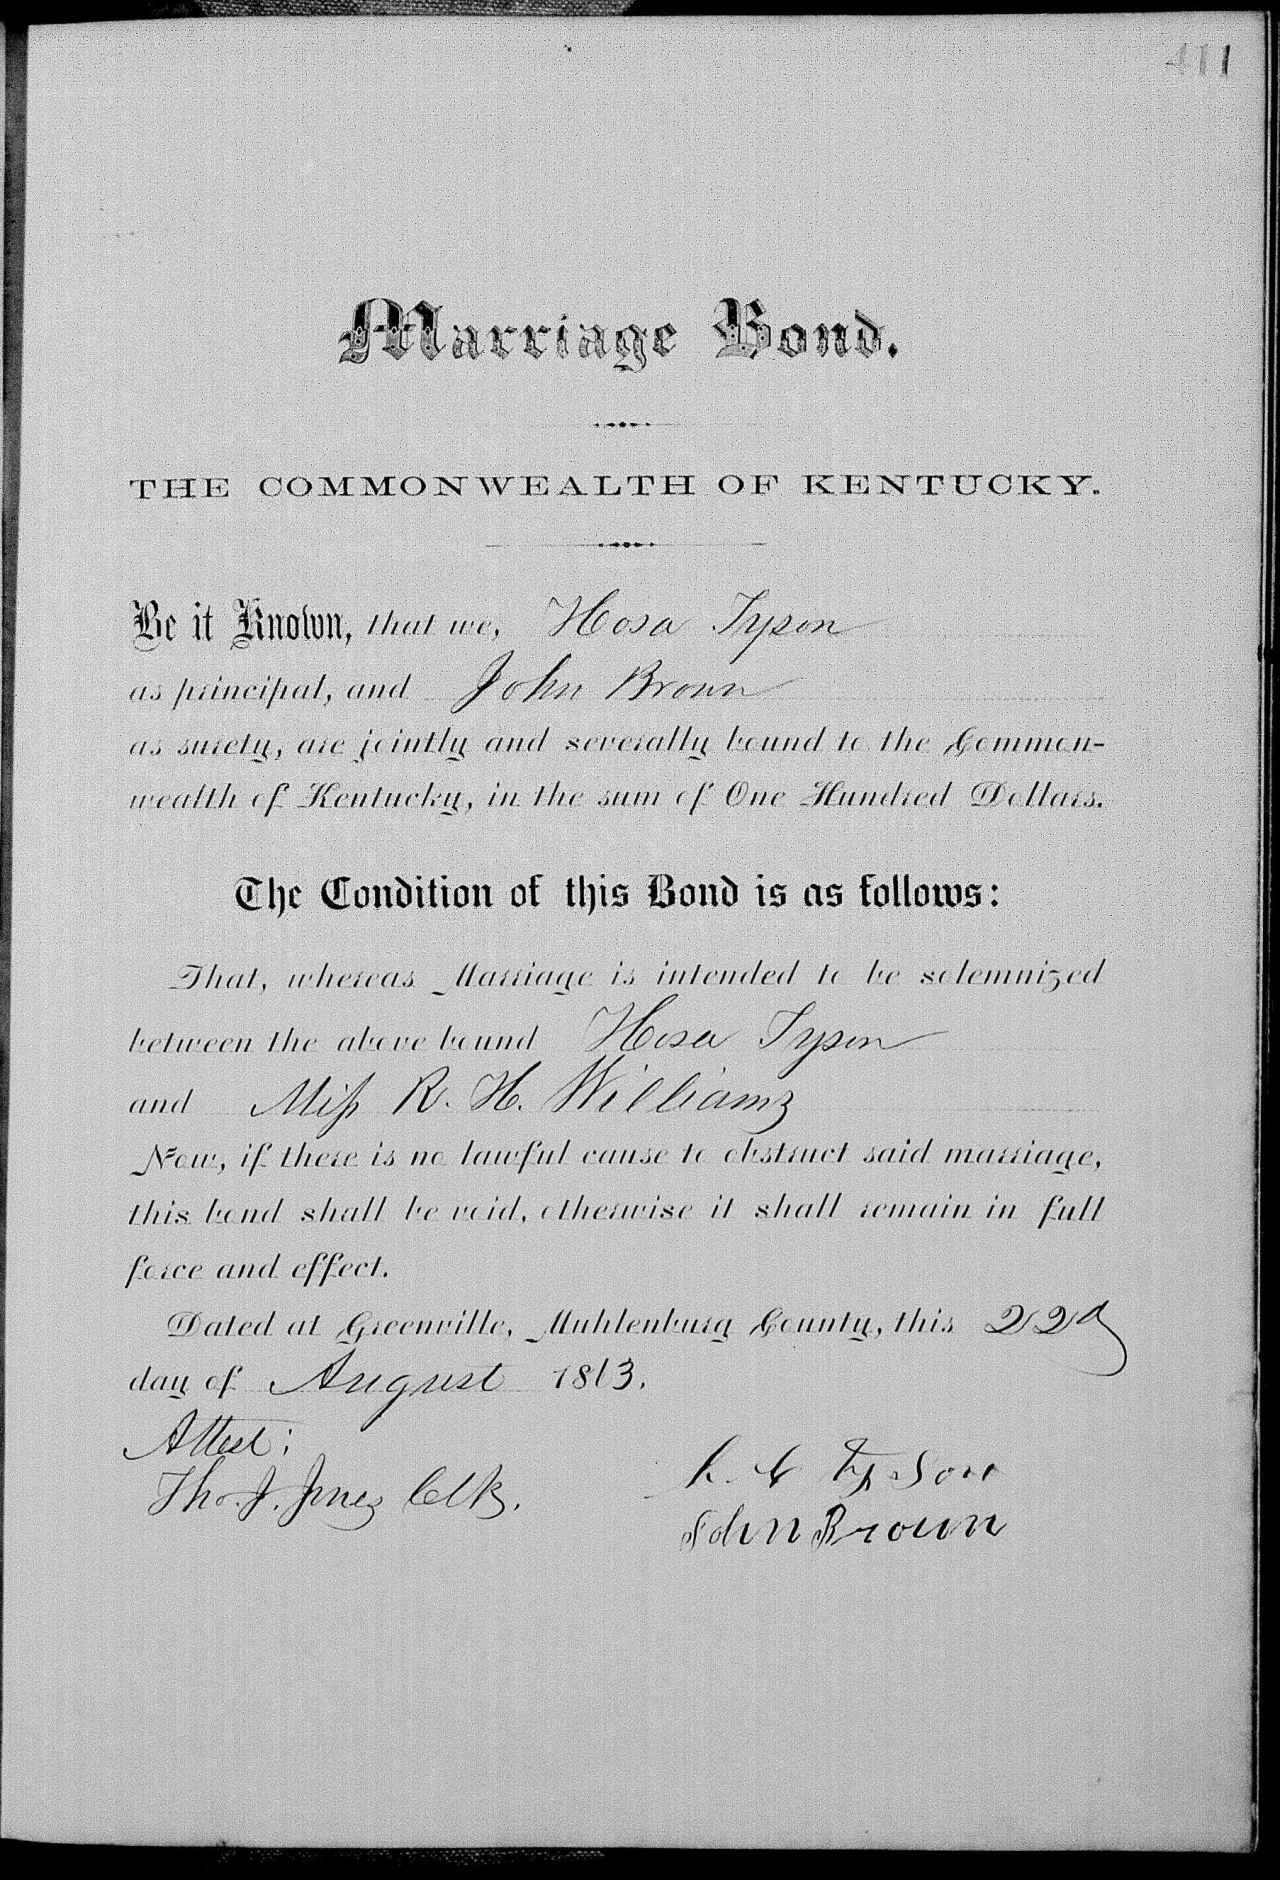 411
Marriage Bond.
THE COMMONWEALTH OF KENTUCKY.
Be it Known, that we, Hosa Tyson
as principal, and John Brown
as surety, are jointly and severally bound to the Common-
wealth of Kentucky, in the sum of One Hundred Dollars.
The Condition of this Bond is as follows:
That, whereas Marriage is intended to be solemnized
between the above bound Hosa Tyson
and Miss R. H. Williams
Now, if there is no lawful cause to obstruct said marriage,
this bond shall be void, otherwise it shall remain in full
force and effect.
Dated at Greenville, Muhlenburg County, this 22d
day of August
Attest:
Tho. J. Jones Clk.
Tyson
John Brown